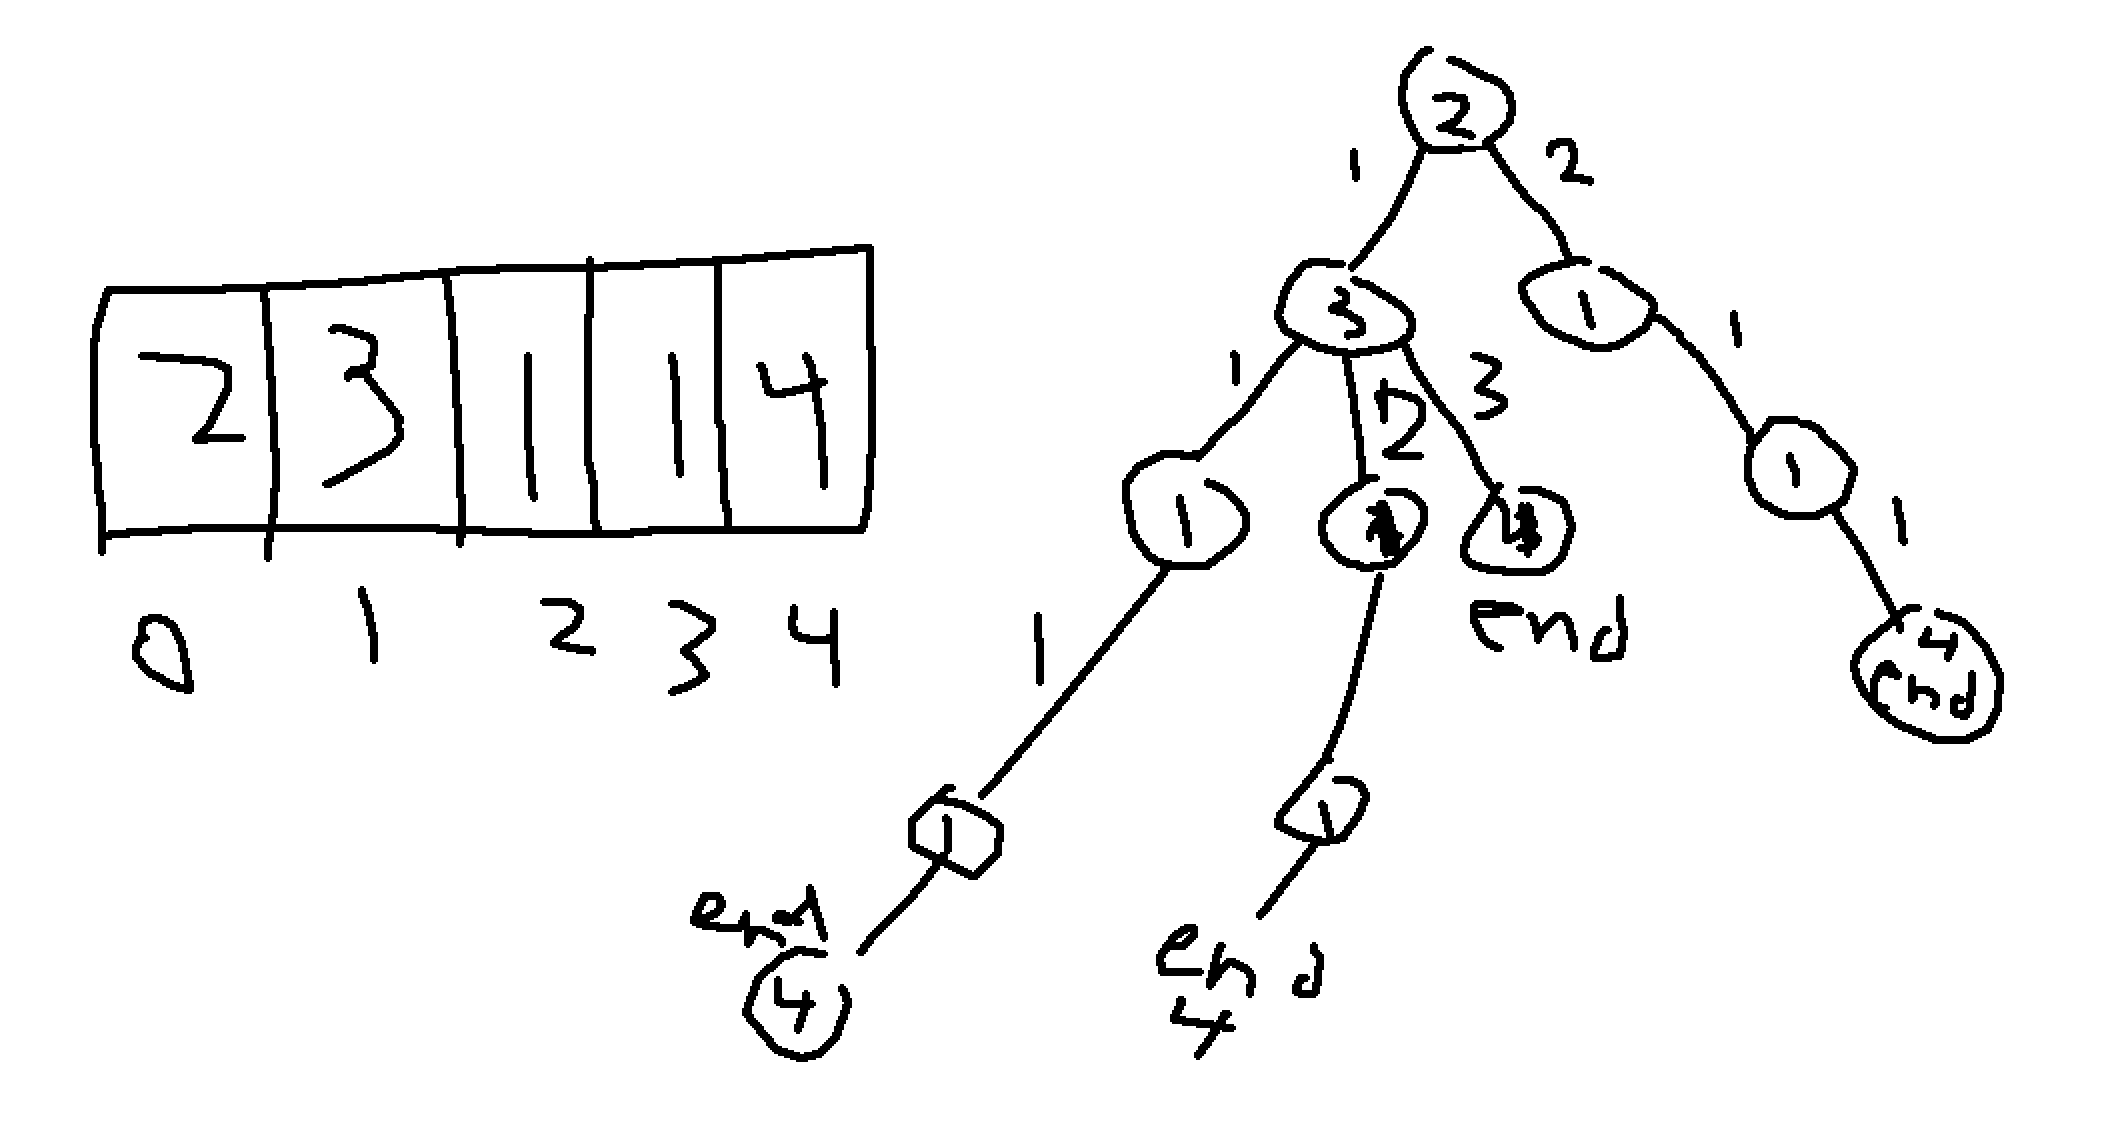 2 3 1 1 4
0 1 2 3 4
2
1 2
3 1
1 2 3 1
1 4 1
1
end
4
end
1 1
end
4
end
4